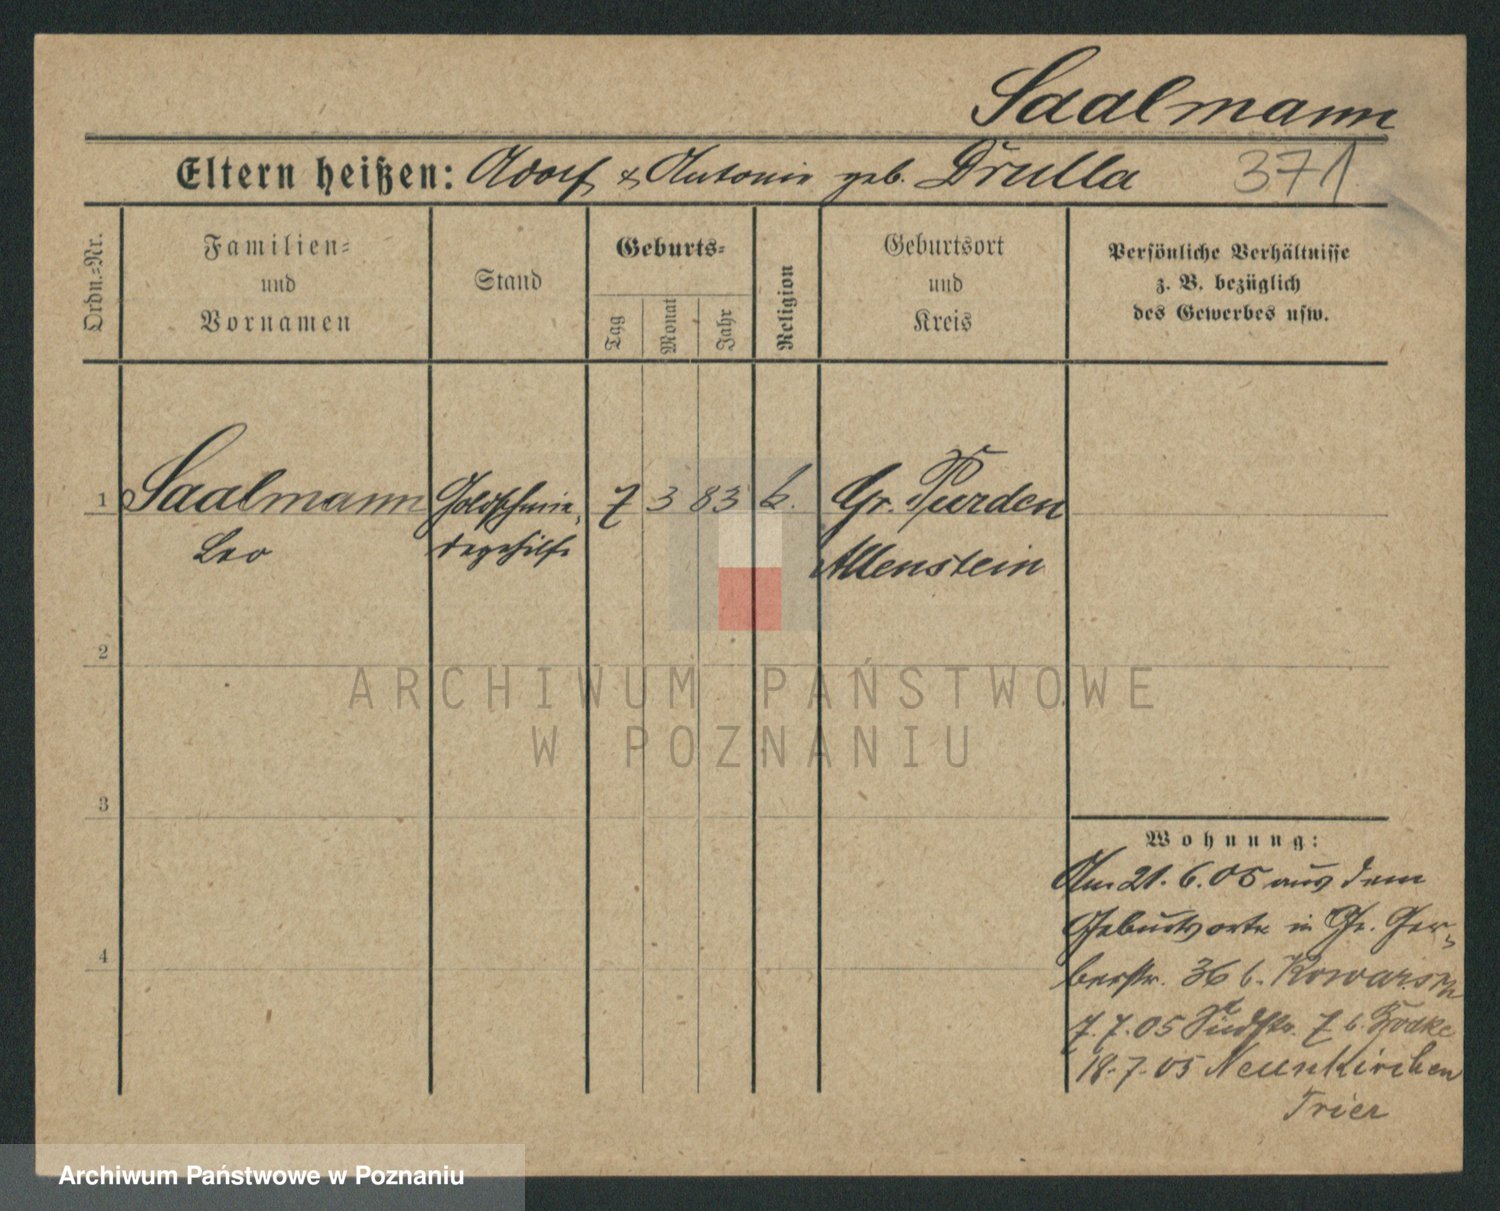 Saalmann
Eltern heißen: Adolf & Antonie geb. Drulla 371
Ordn.=Nr.
Familien=
und
Vornamen
Stand
Geburts=
Tag
Monat
Jahr
Religion
Geburtsort
und
Kreis
Persönliche Verhältnisse
z. B. bezüglich
des Gewerbes usw.
1 Saalmann Goldschmie= 7 3 83 k. Gr. Purden
Leo degehilfe Allenstein
2
ARCHIWUM PAŃSTWOWE
W POZNANIU
3
Wohnung:
Am 21. 6. 05 aus dem
Geburtsorte in Gr. Ger=
berstr. 36 b.
4
7. 7. 05 Südstr. 7 b.
18. 7. 05 Neunkirchen
Trier
Archiwum Państwowe w Poznaniu